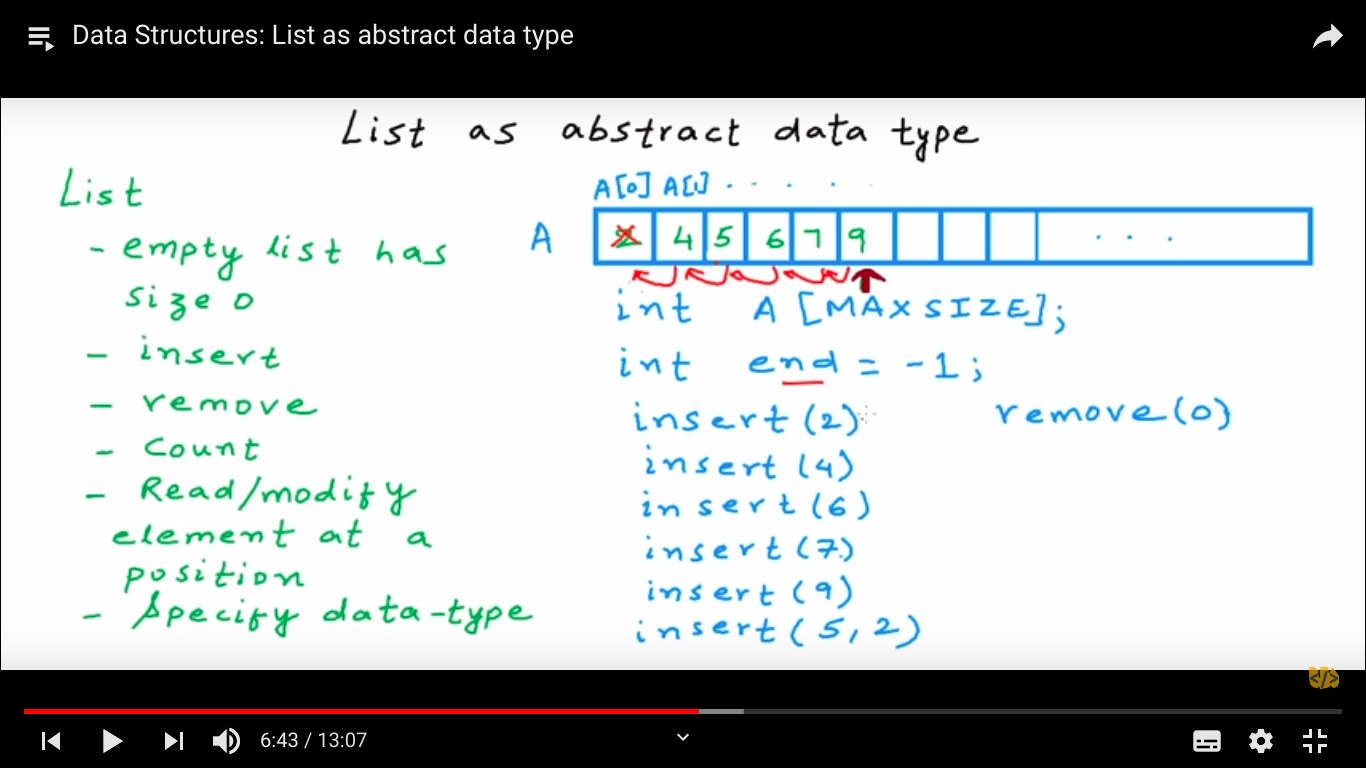 Data Structures: List as abstract data type
List as abstract data type
List
- empty list has
size 0
- insert
- remove
- Count
- Read/modify
element at a
position
- Specify data-type
A[0] A[1] . . . .
A 2 4 5 6 7 9 . . .
int A [MAXSIZE];
int end = -1;
insert (2) remove(0)
insert (4)
insert (6)
insert (7)
insert (9)
insert (5, 2)
</>
6:43 / 13:07